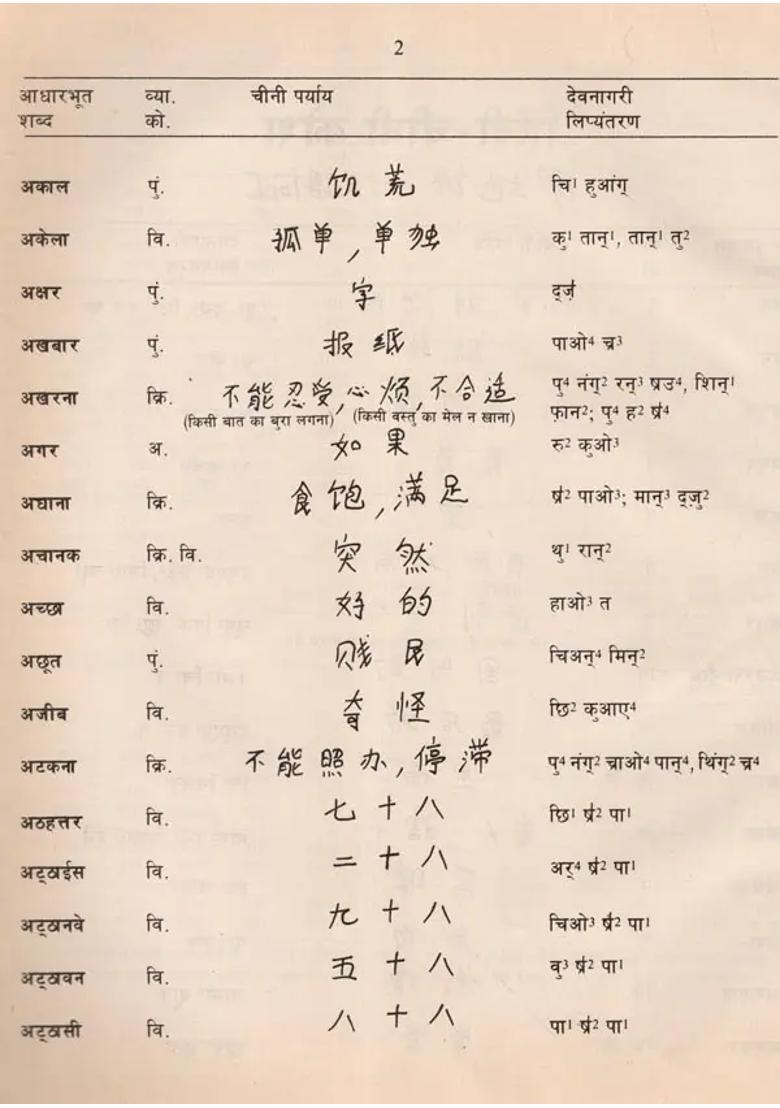 2
आधारभूत व्या. चीनी पर्याय देवनागरी
शब्द को. लिप्यंतरण
अकाल पुं. 饥荒 चि¹ हुआंग्
अकेला वि. 孤单,单独 कु¹ तान्¹, तान्¹ तु²
अक्षर पुं. 字 द्ज़ॆ
अखबार पुं. 报纸 पाओ⁴ च्र³
अखरना क्रि. 不能忍受,心烦,不合适 पु⁴ नंग्² रन्³ ष्रउ⁴, शिन्¹
(किसी बात का बुरा लगना) (किसी बस्तु का मेल न खाना) फ़ान²; पु⁴ ह² ष्रॆ⁴
अगर अ. 如果 रु² कुओ³
अघाना क्रि. 食饱,满足 ष्रॆ² पाओ³; मान्³ द्ज़ु²
अचानक क्रि. वि. 突然 थु¹ रान्²
अच्छा वि. 好的 हाओ³ त
अछूत पुं. 贱民 चिअन्⁴ मिन्²
अजीब वि. 奇怪 छि² कुआए⁴
अटकना क्रि. 不能照办,停滞 पु⁴ नंग्² च्राओ⁴ पान्⁴, थिंग्² च्र⁴
अठहत्तर वि. 七十八 छि¹ ष्रॆ² पा¹
अट्ठाईस वि. 二十八 अर्⁴ ष्रॆ² पा¹
अट्ठानवे वि. 九十八 चिओ³ ष्रॆ² पा¹
अट्ठावन वि. 五十八 वु³ ष्रॆ² पा¹
अट्ठासी वि. 八十八 पा¹ ष्रॆ² पा¹